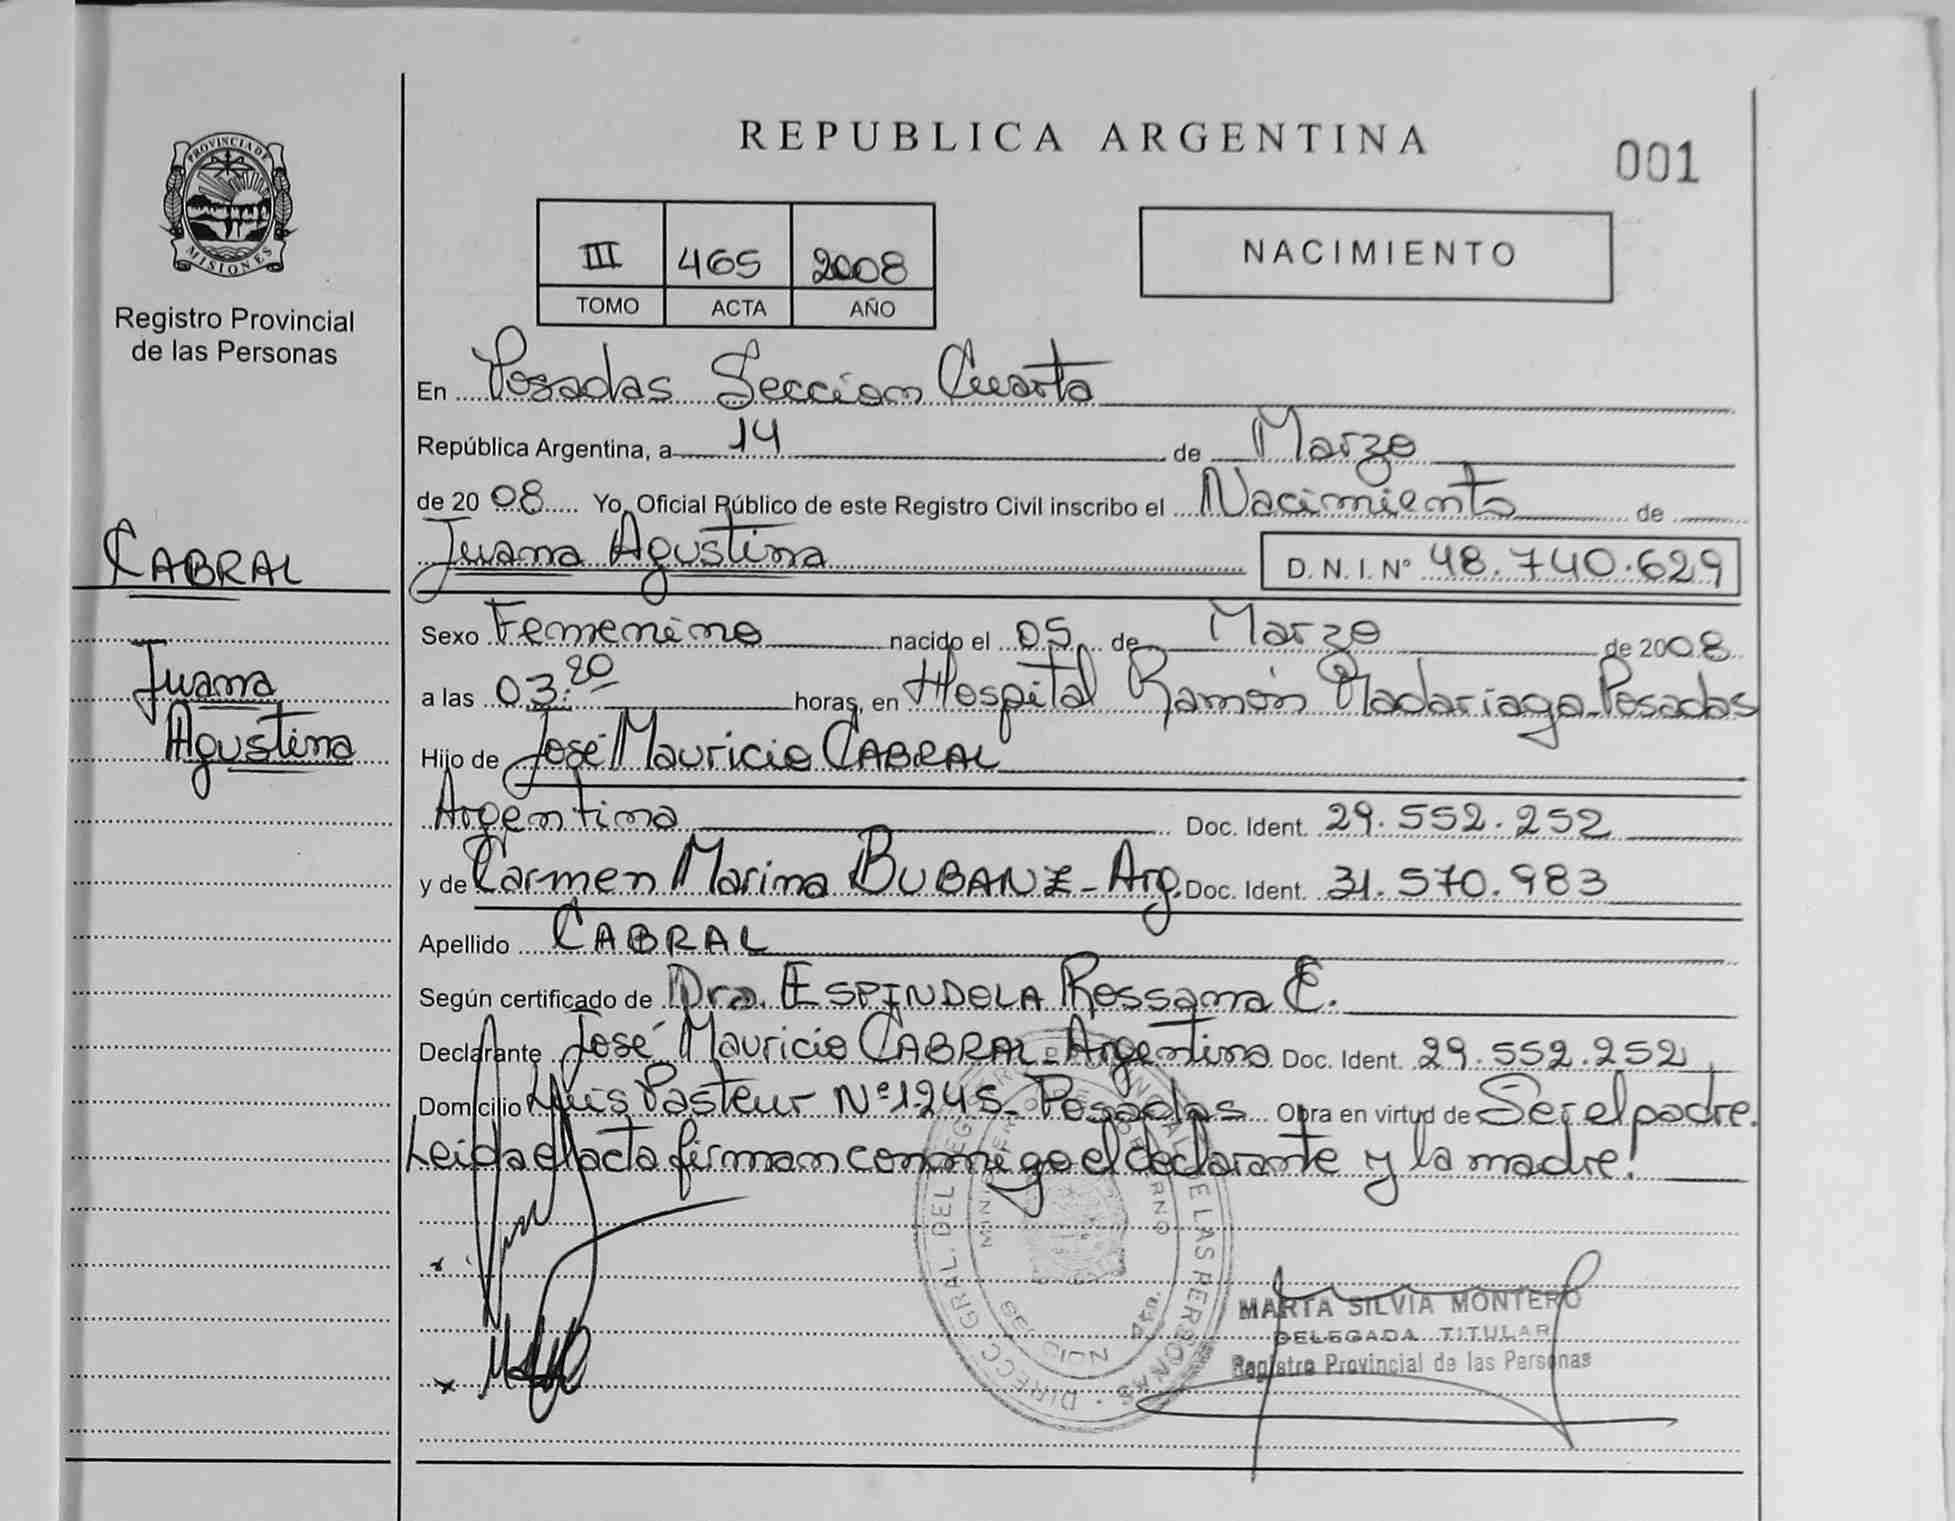 PROVINCIA DE
MISIONES
Registro Provincial
de las Personas
CABRAL
Juana
Agustina
REPUBLICA ARGENTINA
001
III 465 2008
TOMO ACTA AÑO
NACIMIENTO
En Posadas Seccion Cuarta
República Argentina, a 14 de Marzo
de 2008 Yo, Oficial Público de este Registro Civil inscribo el Nacimiento de
Juana Agustina D. N. I. N° 48.740.629
Sexo Femenino nacido el 05 de Marzo de 2008
a las 03:20 horas, en Hospital Ramón Madariaga-Posadas
Hijo de José Mauricio CABRAL
Argentina Doc. Ident. 29.552.252
y de Carmen Marina BUBANZ - Arg. Doc. Ident. 31.570.983
Apellido CABRAL
Según certificado de Dra. ESPINDOLA Rossana E.
Declarante José Mauricio CABRAL - Argentina Doc. Ident. 29.552.252
Domicilio Luis Pasteur Nº 1245 - Posadas Obra en virtud de Ser el padre.
Leida el acta firman conmigo el declarante y la madre.
MARTA SILVIA MONTERO
DELEGADA TITULAR
Registro Provincial de las Personas